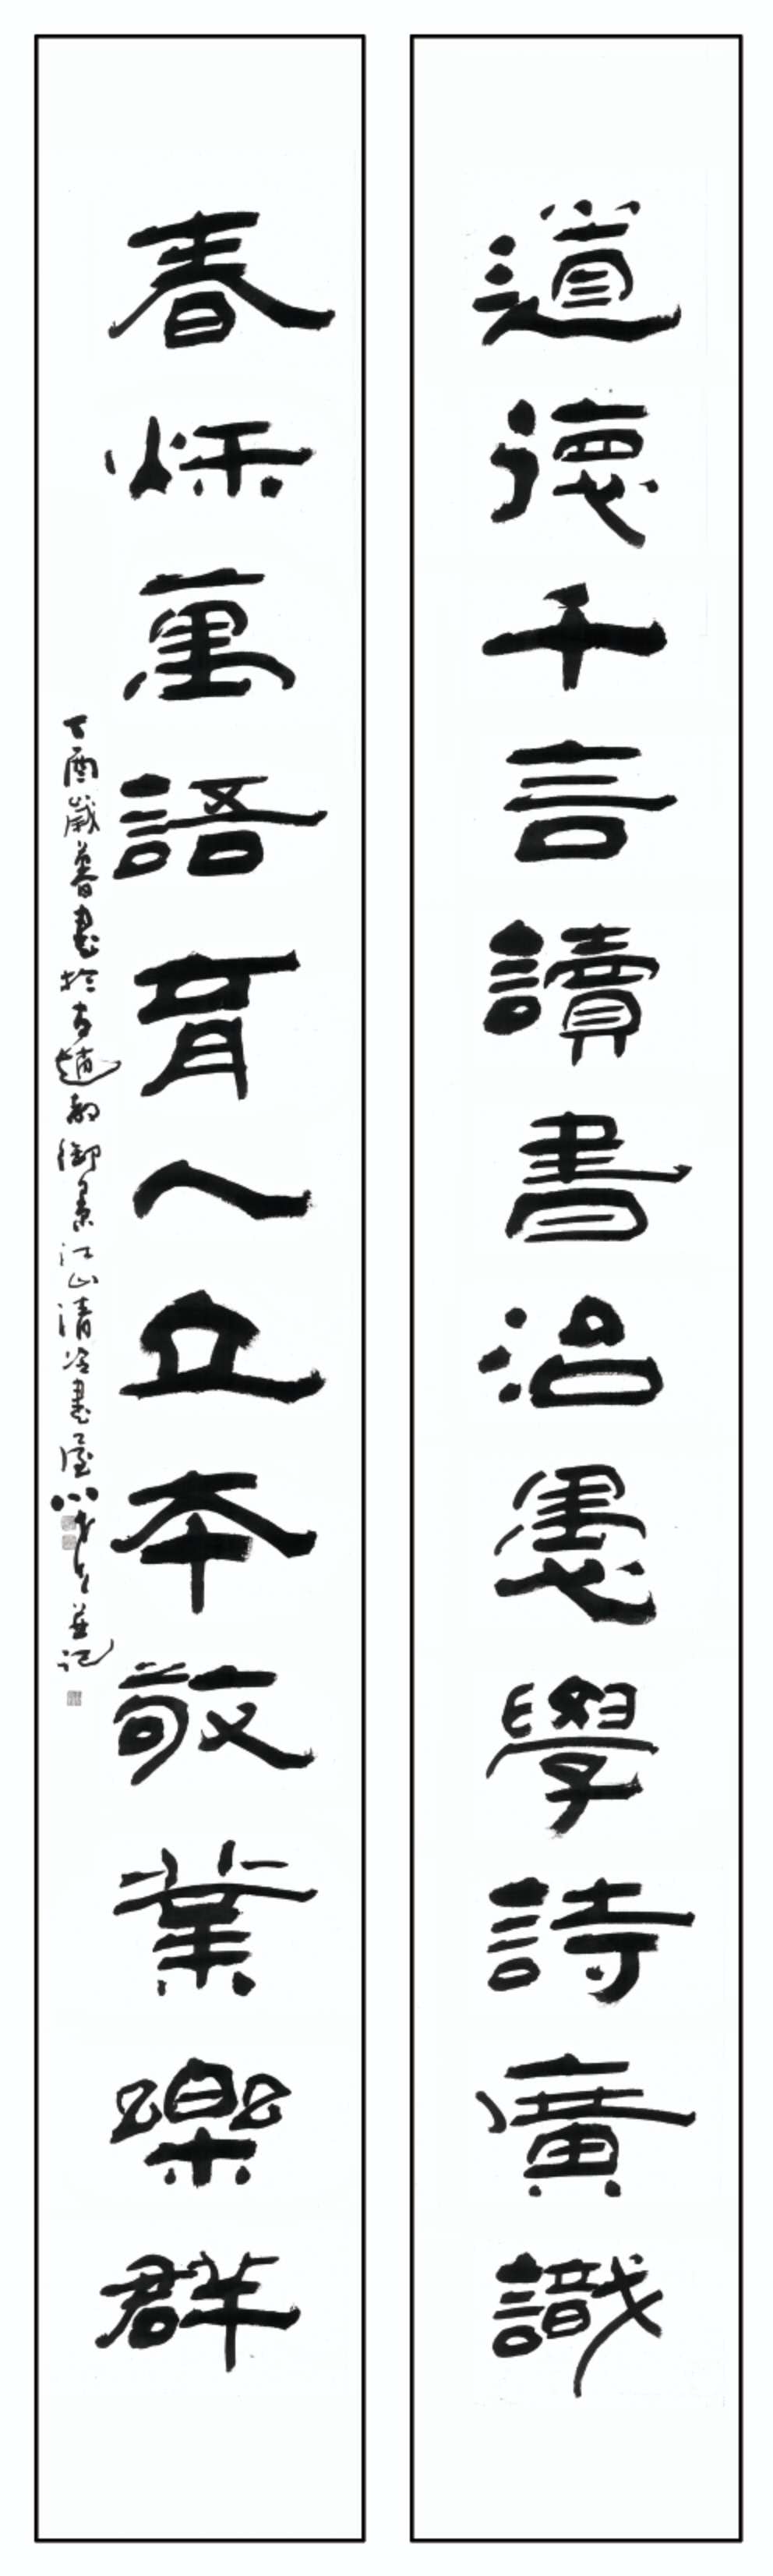 道德千言讀書治愚學詩廣識
春秌萬語育人立本敬業樂群
丁酉歲暮書於古趙都御景江山清泠書屋
並記